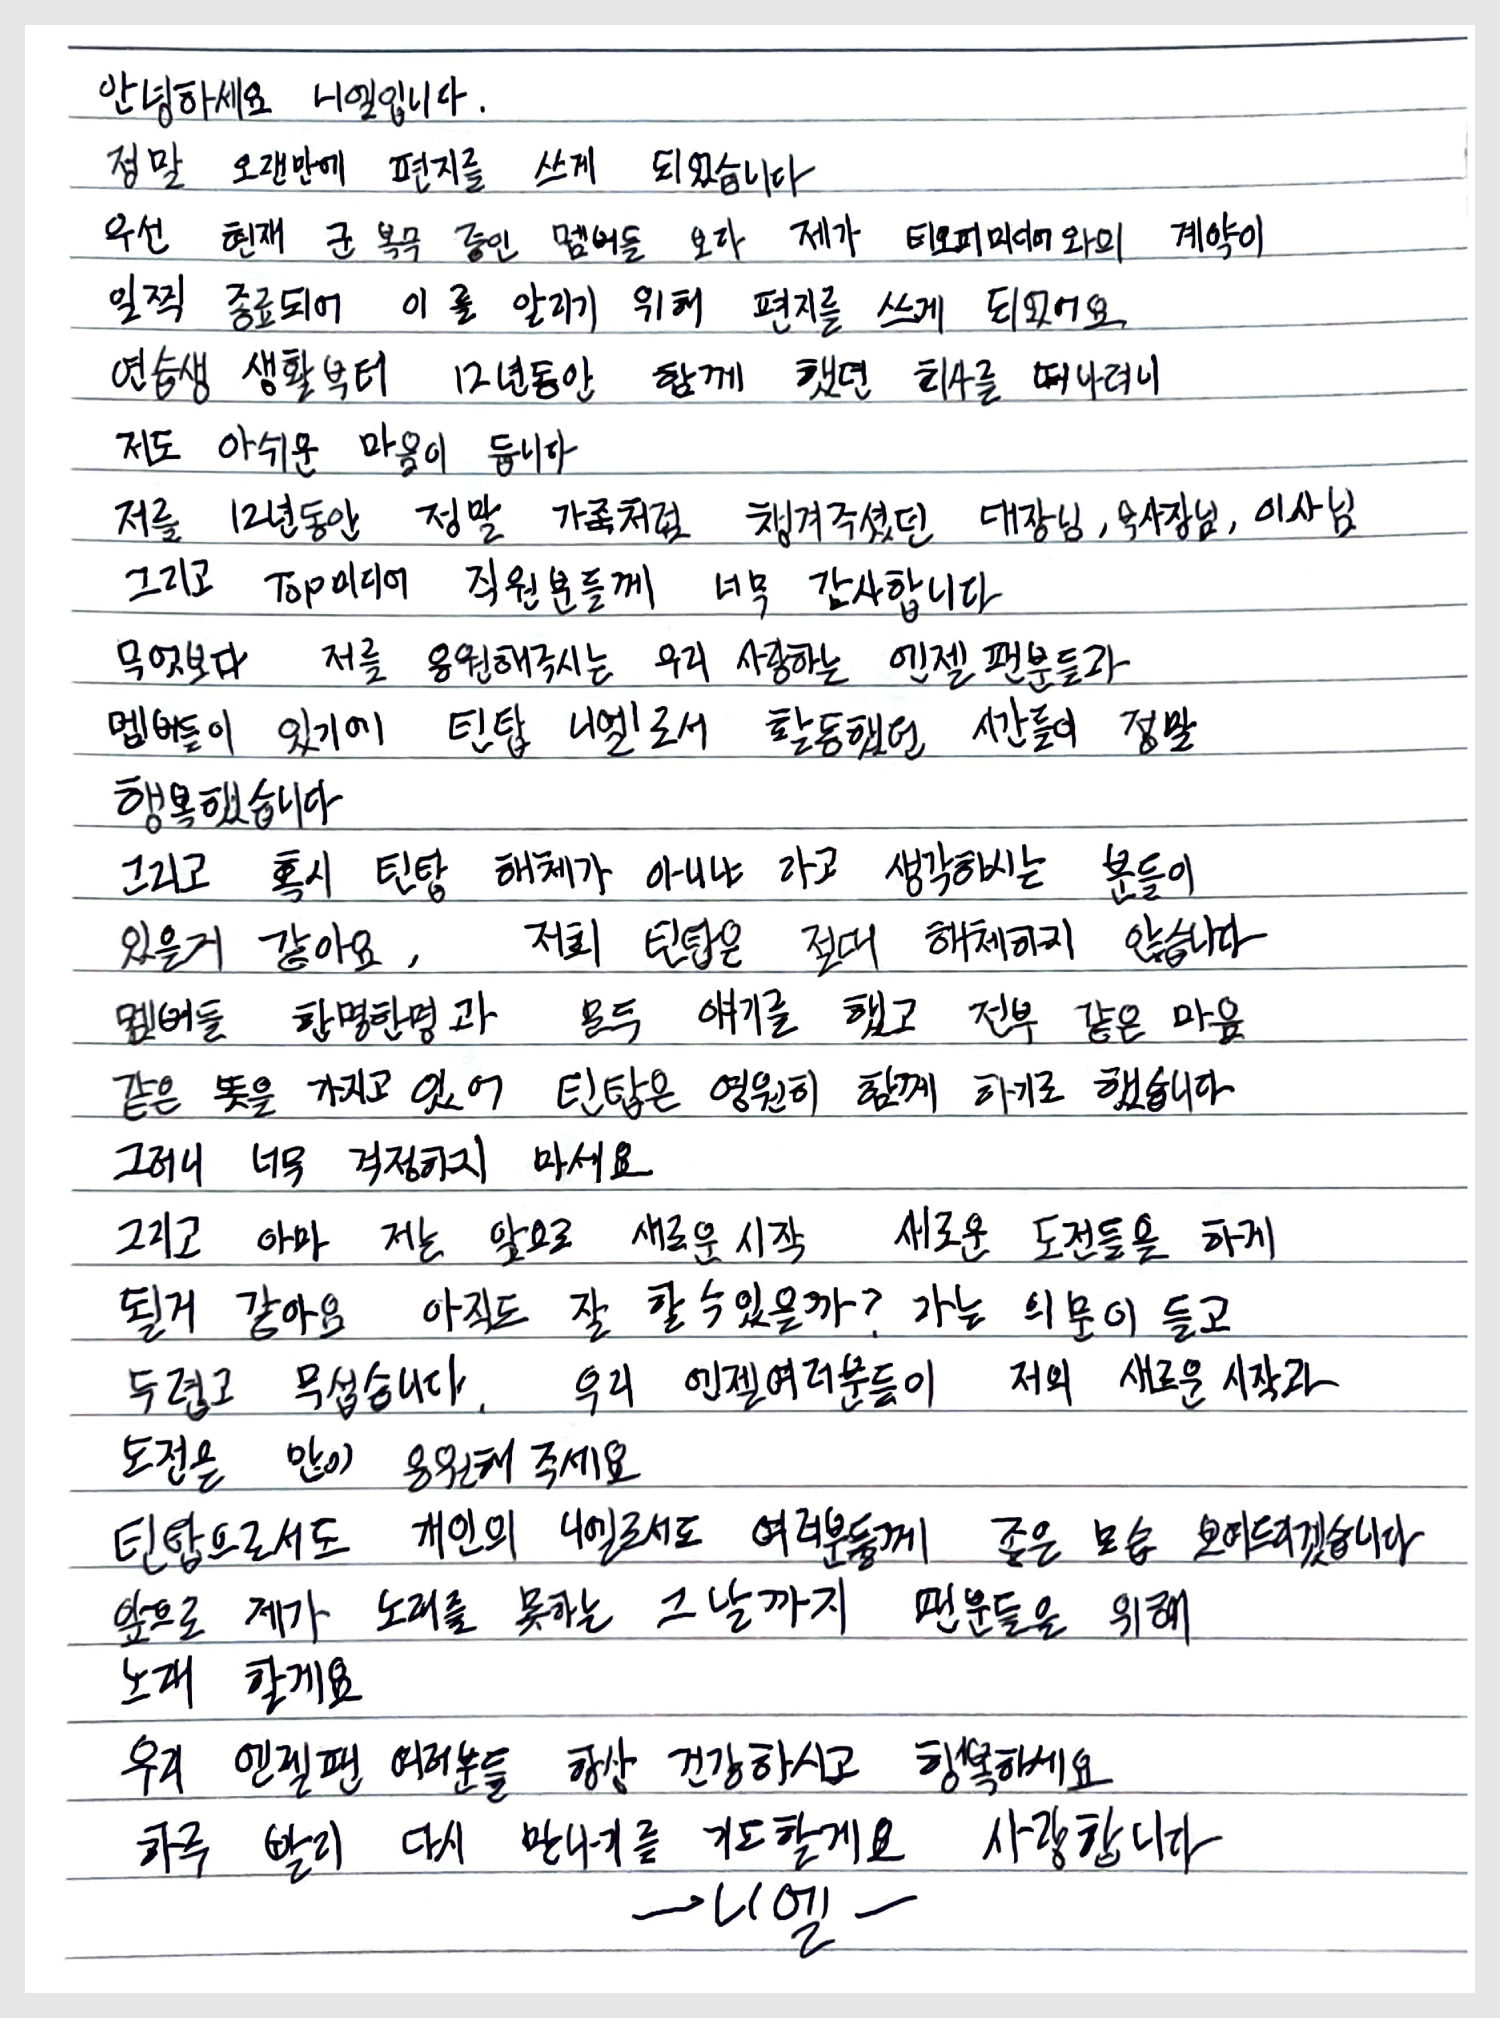 안녕하세요 니엘입니다.
정말 오랜만에 편지를 쓰게 되었습니다
우선 현재 군 복무 중인 멤버들 보다 제가 티오피미디어와의 계약이
일찍 종료되어 이를 알리기 위해 편지를 쓰게 되었어요
연습생 생활부터 12년동안 함께 했던 회사를 떠나려니
저도 아쉬운 마음이 듭니다
저를 12년동안 정말 가족처럼 챙겨주셨던 대장님, 우사장님, 이사님
그리고 Top미디어 직원분들께 너무 감사합니다
무엇보다 저를 응원해주시는 우리 사랑하는 엔젤팬분들과
멤버들이 있기에 틴탑 니엘로서 활동했던 시간들이 정말
행복했습니다
그리고 혹시 틴탑 해체가 아니냐 라고 생각하시는 분들이
있을거 같아요, 저희 틴탑은 절대 해체하지 않습니다
멤버들 한명한명과 모두 얘기를 했고 전부 같은 마음
같은 뜻을 가지고 있어 틴탑은 영원히 함께 하기로 했습니다
그러니 너무 걱정하지 마세요
그리고 아마 저는 앞으로 새로운 시작 새로운 도전들을 하게
될거 같아요 아직도 잘 할 수 있을까? 라는 의문이 들고
두렵고 무섭습니다. 우리 엔젤여러분들이 저의 새로운 시작과
도전을 많이 응원해 주세요
틴탑으로서도 개인의 니엘로서도 여러분들께 좋은 모습 보여드리겠습니다
앞으로 제가 노래를 못하는 그날까지 팬분들을 위해
노래 할게요
우리 엔젤팬 여러분들 항상 건강하시고 행복하세요
하루 빨리 다시 만나기를 기도할게요 사랑합니다
니엘